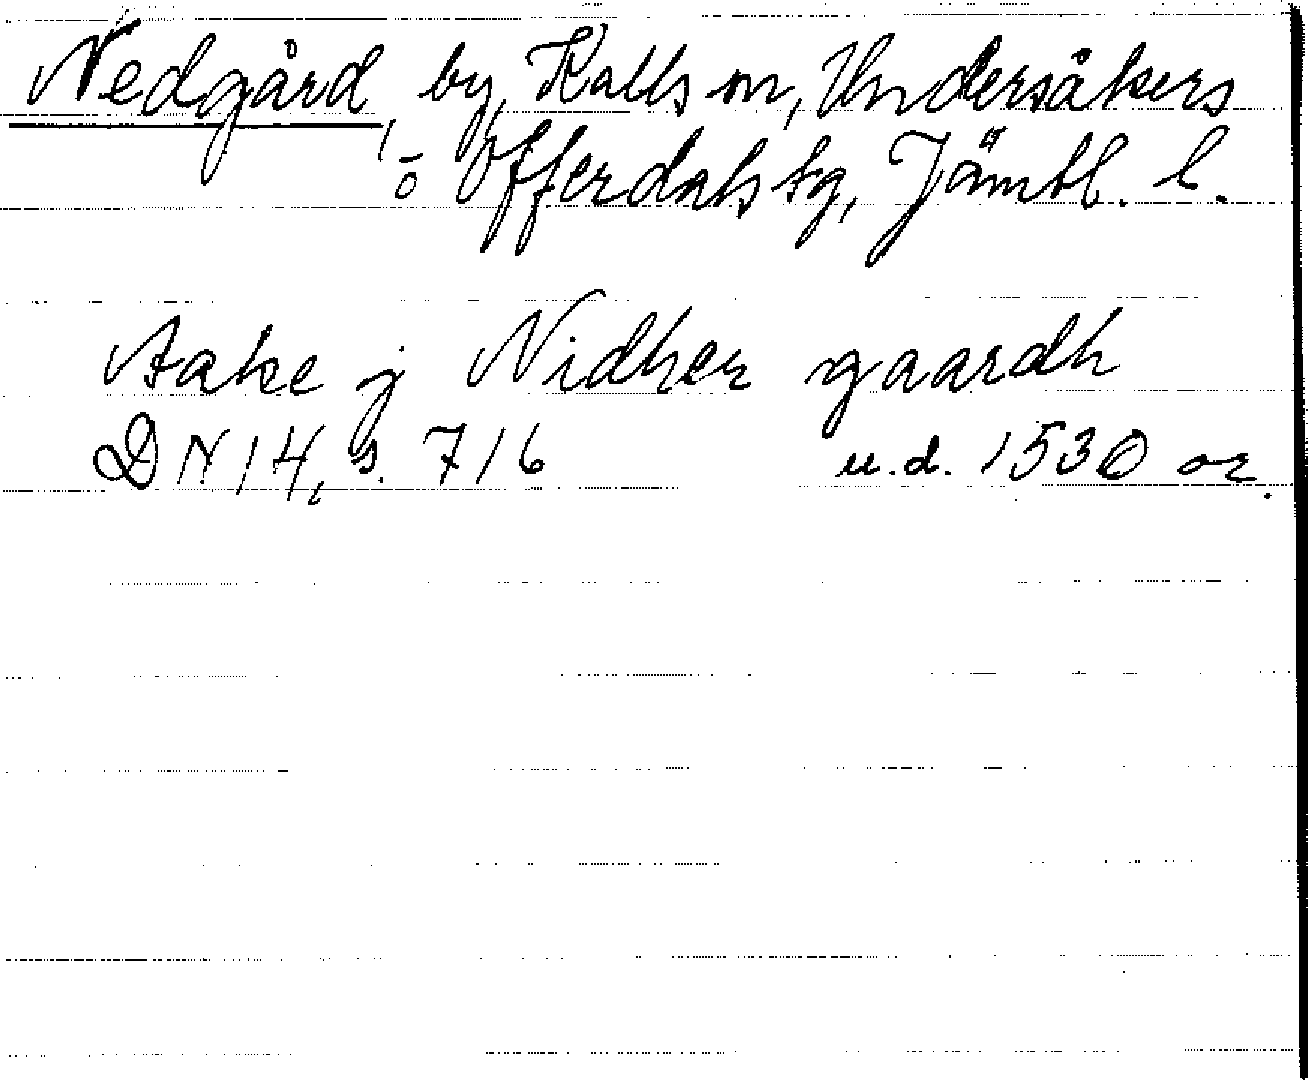 Nedgård, by, Kalls sn, Undersåkers
o Offerdals tg, Jämtl. l.
Aake j Nidher gaardh
DN 14, s. 716 u.d. 1530 or.